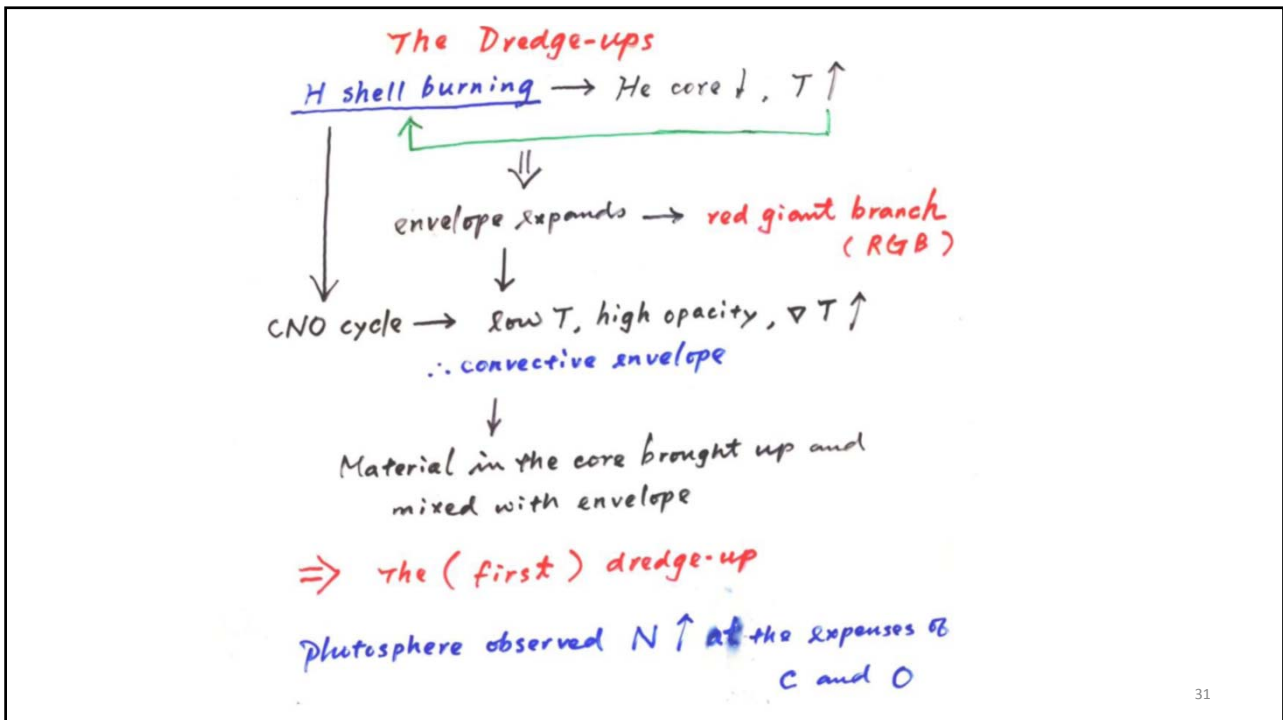 The Dredge-ups
H shell burning → He core ↓, T ↑
⇓
envelope expands → red giant branch
(RGB)
↓
CNO cycle → low T, high opacity, ∇ T ↑
∴ convective envelope
↓
Material in the core brought up and
mixed with envelope
⇒ The (first) dredge-up
Phutosphere observed N ↑ at the expenses of
C and O
31